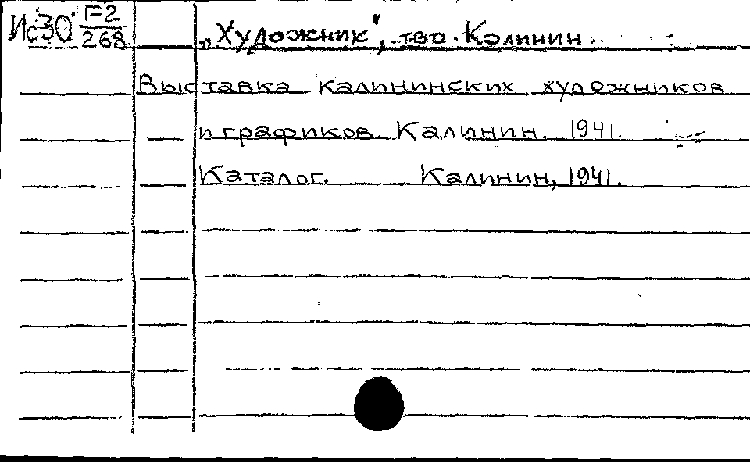 Ис30 Г-2/268
„Художник", тво. Калинин.
Выставка калининских художников
и графиков Калинин. 1941.
Каталог. Калинин, 1941.